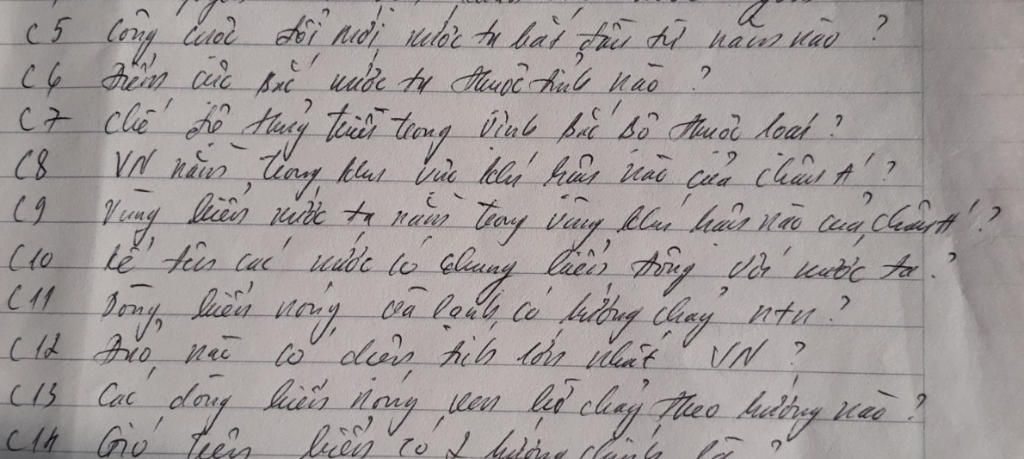 C5 Công cuộc đổi mới nước ta bắt đầu từ năm nào ?
C6 Điểm cực Bắc nước ta thuộc tỉnh nào ?
C7 Chế độ thuỷ triều trong Vịnh Bắc Bộ thuộc loại ?
C8 VN nằm trong khu vực khí hậu nào của Châu Á ?
C9 Vùng biển nước ta nằm trong vùng khí hậu nào của Châu Á ?
C10 Kể tên các nước có chung biển Đông với nước ta ?
C11 Dòng biển nóng và lạnh có hướng chảy ntn ?
C12 Đảo nào có diện tích lớn nhất VN ?
C13 Các dòng biển nóng ven bờ chảy theo hướng nào ?
C14 Gió trên biển có 2 hướng chính là ?